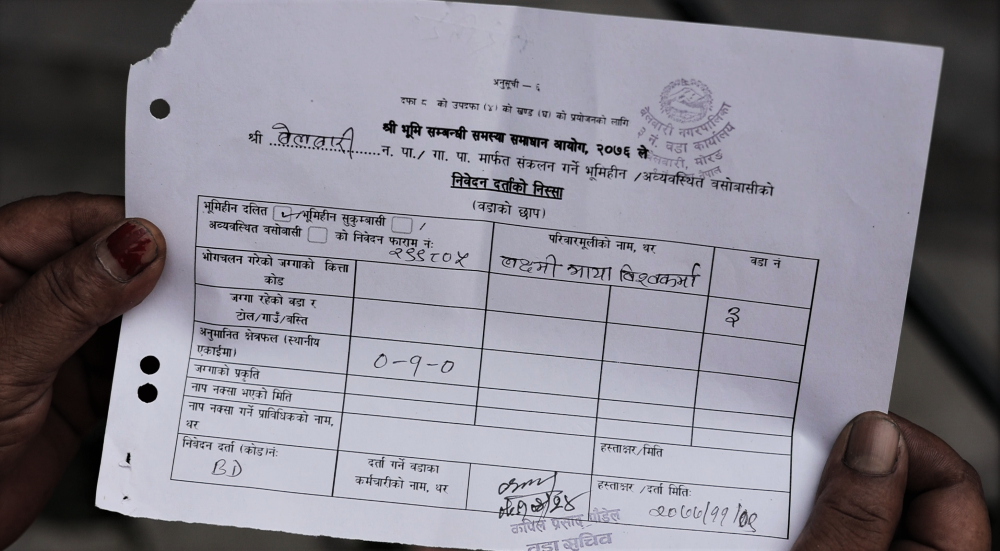 अनुसूची – ६
दफा ८ को उपदफा (४) को खण्ड (घ) को प्रयोजनको लागि
श्री भूमि सम्बन्धी समस्या समाधान आयोग, २०७६ ले
श्री बेलवारी न. पा./ गा. पा. मार्फत संकलन गर्ने भूमिहीन /अव्यवस्थित वसोवासीको
निवेदन दर्ताको निस्सा
(वडाको छाप)
बेलवारी नगरपालिका
नं. वडा कार्यालय
बेलवारी, मोरङ
नेपाल
भूमिहीन दलित /भूमिहीन सुकुम्बासी /
अव्यवस्थित वसोवासी को निवेदन फाराम नः
२९९८०५
परिवारमूलीको नाम, थर
लक्ष्मी माया विश्वकर्मा
वडा नं
३
भोगचलन गरेको जग्गाको कित्ता
कोड
जग्गा रहेको वडा र
टोल/गाउँ/वस्ति
अनुमानित क्षेत्रफल (स्थानीय
एकाईमा)
०-१-०
जग्गाको प्रकृति
नाप नक्सा भएको मिति
नाप नक्सा गर्ने प्राविधिकको नाम,
थर
हस्ताक्षर/मिति
निवेदन दर्ता (कोड)नंः
BD
दर्ता गर्ने वडाका
कर्मचारीको नाम, थर
हस्ताक्षर /दर्ता मितिः
२०७७/११/०९
कपिल प्रसाद पौडेल
वडा सचिव